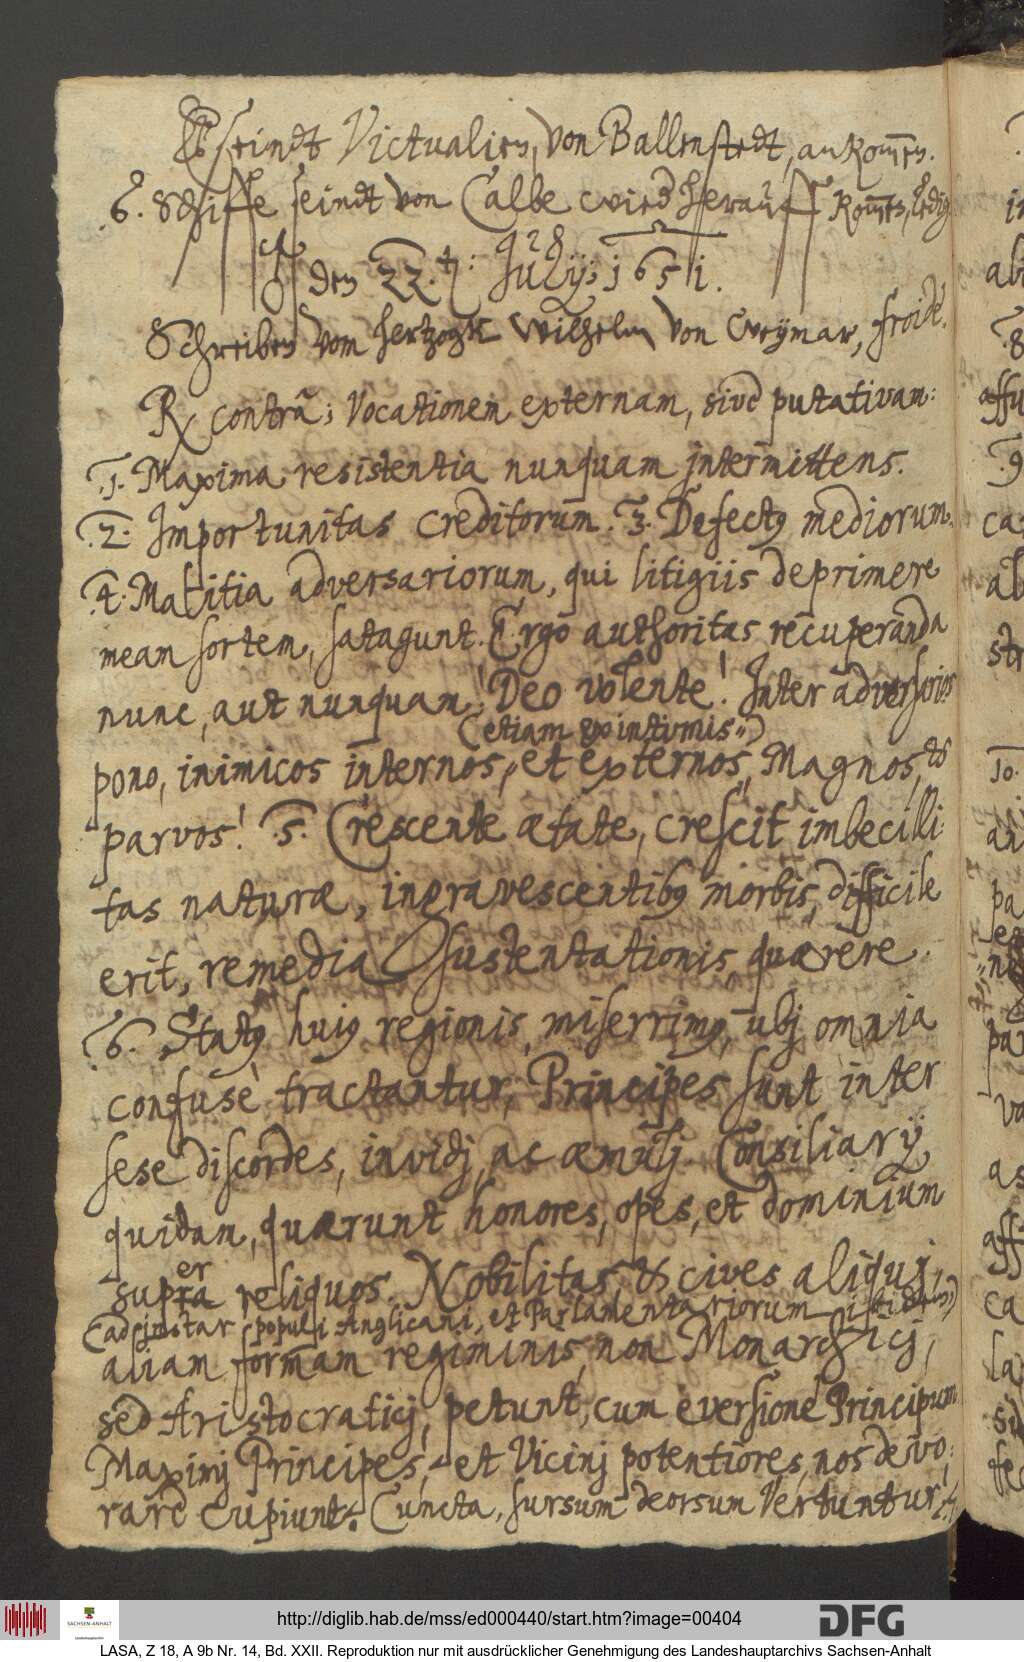 Es seindt Victualien, von Ballenstedt, ankom̄en.
6. Schiffe seindt von Calbe wied herauff kom̄en, ledig
den 22. July: 1651.
928
Schreiben vom hertzogk Wilhelm von Weymar, froide.
Rx contrà; Vocationem externam, sive putativam:
.1. Maxima resistentia nunquam intermittens.
.2. Importunitas creditorum. .3. Defectus mediorum.
.4. Malitia adversariorum, qui litigiis deprimere
meam sortem, satagunt. Ergo authoritas recuperanda
nunc, aut nunquam! Deo volente! Inter adversarios
(etiam ex intimis)
pono, inimicos internos, et externos, Magnos, et
parvos! .5. Crescente ætate, crescit imbecilli-
tas naturæ, ingravescentibus morbis, difficile
erit, remedia sustentationis, quærere.
.6. Status huius regionis, miserrimus, ubj omnia
confusè tractantur, Principes sunt inter
sese discordes, invidj, ac æmulj. Consiliarij
quidam, quærunt honores, opes, et dominium
super reliquos. Nobilitas et cives aliquj,
(ad instar populi Anglicani, et Parlamentariorum
aliam formam regiminis, non Monarchicj,
sed Aristocraticj, petunt, cum eversione Principum
Maximj Principes, et Vicinj potentiores, nos devo-
rare cupiunt. Cuncta, sursum deorsum vertuntur!
http://diglib.hab.de/mss/ed000440/start.htm?image=00404
SACHSEN-ANHALT
Landeshauptarchiv
DFG
LASA, Z 18, A 9b Nr. 14, Bd. XXII. Reproduktion nur mit ausdrücklicher Genehmigung des Landeshauptarchivs Sachsen-Anhalt